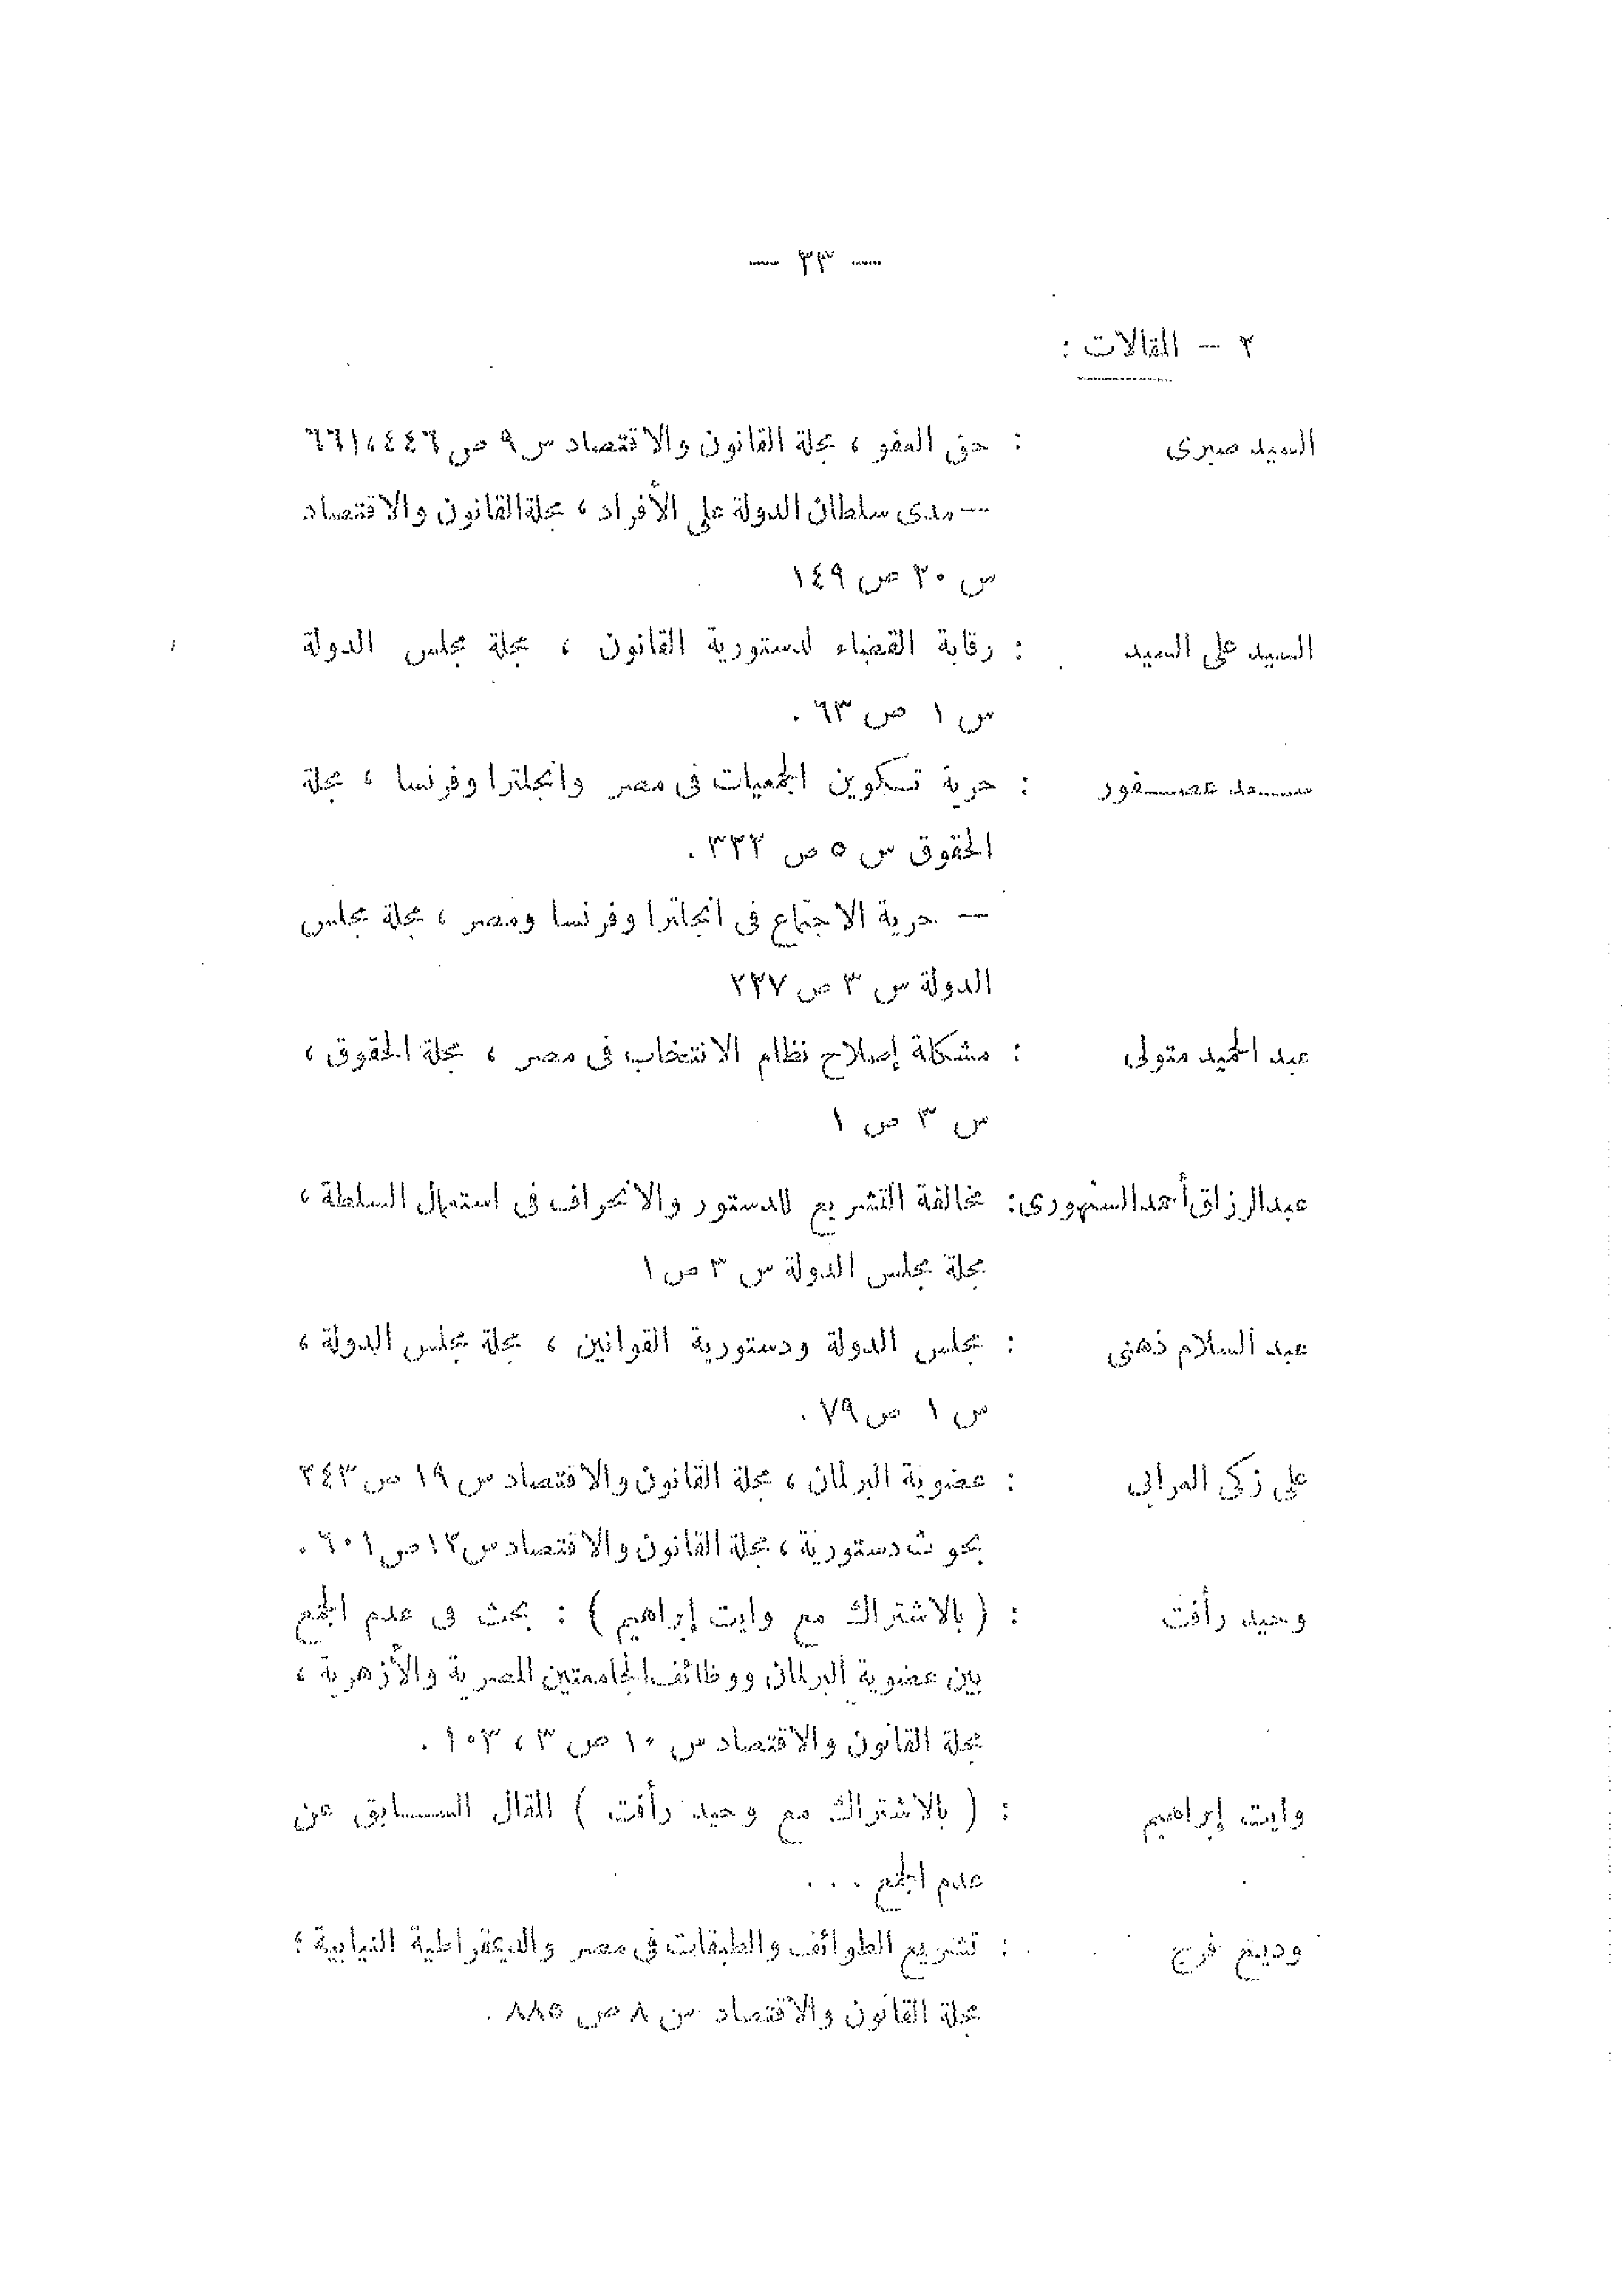 — ٣٣ —
٢ — المقالات :
السيد صبرى : حق العفو ، مجلة القانون والاقتصاد س ٩ ص ٤٤٦ ، ٦٦١
— مدى سلطان الدولة على الأفراد ، مجلة القانون والاقتصاد
س ٢٠ ص ١٤٩
السيد على السيد : رقابة القضاء لدستورية القانون ، مجلة مجلس الدولة
س ١ ص ٦٣ .
ســعد عصــفور : حرية تكوين الجمعيات فى مصر وانجلترا وفرنسا ، مجلة
الحقوق س ٥ ص
— حرية الاجتماع فى انجلترا وفرنسا ومصر ، مجلة مجلس
الدولة س ٣ ص
عبد الحميد متولى : مشكلة إصلاح نظام الانتخاب فى مصر ، مجلة الحقوق ،
س ٣ ص ١
عبد الرزاق أحمد السنهورى : مخالفة التشريع للدستور والانحراف فى استعمال السلطة ،
مجلة مجلس الدولة س ٣ ص ١
عبد السلام ذهنى : مجلس الدولة ودستورية القوانين ، مجلة مجلس الدولة ،
س ١ ص ٧٩ .
على زكى العرابى : عضوية البرلمان ، مجلة القانون والاقتصاد س ١٩ ص ٢٤٣
بحوث دستورية ، مجلة القانون والاقتصاد س ١٢ ص ٦٠١ .
وحيد رأفت : ( بالاشتراك مع وايت إبراهيم ) : بحث فى عدم الجمع
بين عضوية البرلمان ووظائف الجامعتين المصرية والأزهرية ،
مجلة القانون والاقتصاد س ١٠ ص ٣ ، ١٠٣ .
وايت إبراهيم : ( بالاشتراك مع وحيد رأفت ) المقال الســابق عن
عدم الجمع . . .
وديع فرج : تشريع الطوائف والطبقات فى مصر والديمقراطية النيابية ؛
مجلة القانون والاقتصاد س ٨ ص ٨٨٥ .